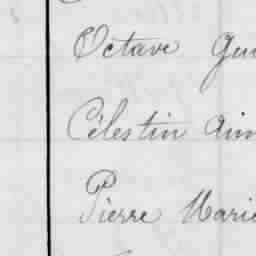 Octave Gu
Célestin Aim
Pierre Marie